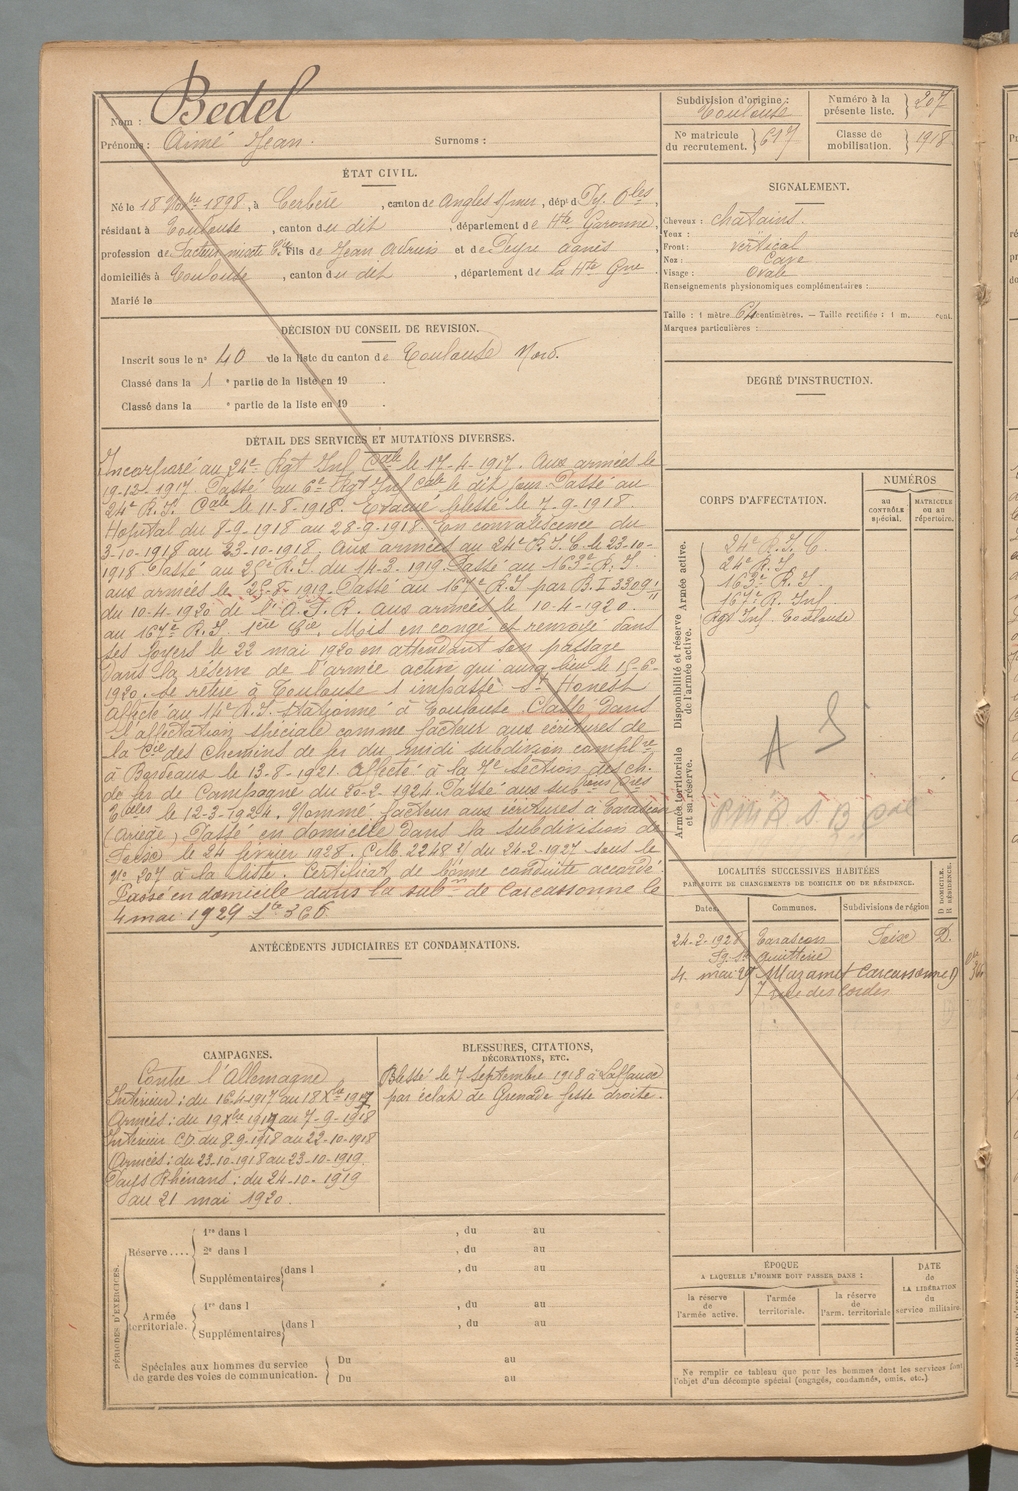 Nom : Bedel
Prénoms : Aimé Jean. Surnoms :
ÉTAT CIVIL.
Né le 18 Nov bre 1898, à Cerbère, canton de Argelès s/mer, dép t de Py. O les,
résidant à Toulouse, canton du dit, département de H te Garonne,
profession de facteur mixte C ie, fils de Jean et de Peyre Agnès,
domiciliés à Toulouse, canton du dit, département de La H te G ne.
Marié le
DÉCISION DU CONSEIL DE REVISION.
Inscrit sous le n° 40 de la liste du canton de Toulouse Nord.
Classé dans la 1 e partie de la liste en 19 .
Classé dans la e partie de la liste en 19 .
DÉTAIL DES SERVICES ET MUTATIONS DIVERSES.
Incorporé au 24e Rgt Inf Cale le 17-4-1917. Aux armées le
19-12-1917. Passé au 6e Rgt Inf Cale le dit jour. Passé au
24e R.I. Cale le 11-8-1918. Evacué blessé le 7-9-1918.
Hopital du 8-9-1918 au 28-9-1918. En convalescence du
3-10-1918 au 23-10-1918, aux armées au 24e R.I.C. le 23-10-
1918. Passé au R.I. du 14-3-1919. Passé au 163e R.I.
aux armées le 25-8-1919. Passé au 167e R.I par B.I 3309/1
du 10-4-1920 de l'A.F.R. aux armées le 10-4-1920.
au 167e R.I. 1ere Cie. Mis en congé et renvoyé dans
ses foyers le 22 mai 1920 en attendant son passage
dans la réserve de l'armée active qui aura lieu le 15-6-
1920. Se retire à Toulouse 1 impasse St Honest
Affecté au 14e R.I. stationné à Toulouse. Classé dans
l'affectation spéciale comme facteur aux écritures de
la Cie des chemins de fer du midi subdivision compl re
à Bordeaux le 13-8-1921. Affecté à la 7e section des ch.
de fer de Campagne du 20-2-1924. Passé aux sub ions C res
T iales le 12-3-1924. Nommé facteur aux écritures à Tarascon
(Ariège), Passé en domicile dans la subdivision de
Foix le 24 février 1928. (du 24-2-1927 sous le
N° 207 à la liste. Certificat de bonne conduite accordé.
Passé en domicile dans la sub on de Carcassonne le
4 mai 1929 L te 366
ANTÉCÉDENTS JUDICIAIRES ET CONDAMNATIONS.
CAMPAGNES.
Contre l'Allemagne
Intérieur : du 16-4-1917 au 18 X bre 1917
Armées : du 19 X bre 1917 au 7-9-1918
Intérieur CD. du 8-9-1918 au 22-10-1918
Armées : du 23-10-1918 au 23-10-1919.
Pays Rhénans : du 24-10-1919
au 21 mai 1920.
BLESSURES, CITATIONS,
DÉCORATIONS, ETC.
Blessé le 7 Septembre 1918 à Laffaux
par éclat de Grenade fesse droite.
PÉRIODES D'EXERCICES.
Réserve.... 1re dans l , du au
2e dans l , du au
Supplémentaires dans l , du au
Armée territoriale. 1re dans l , du au
Supplémentaires dans l , du au
Spéciales aux hommes du service
de garde des voies de communication.
Du au
Du au
Subdivision d'origine :
Toulouse
Numéro à la
présente liste. 207
N° matricule
du recrutement. 617
Classe de
mobilisation. 1918
SIGNALEMENT.
Cheveux : châtains.
Yeux :
Front : vertical
Nez : Cave
Visage : Ovale
Renseignements physionomiques complémentaires :
Taille : 1 mètre 64 centimètres. — Taille rectifiée : 1 m. cent.
Marques particulières :
DEGRÉ D'INSTRUCTION.
CORPS D'AFFECTATION.
NUMÉROS
AU CONTRÔLE spécial.
MATRICULE OU AU répertoire.
Armée active.
24e R.I.C
24e R.I.
163e R.I
167e R. Inf.
Disponibilité et réserve de l'armée active.
Rgt Inf. Toulouse
A S
Armée territoriale et sa réserve.
LOCALITÉS SUCCESSIVES HABITÉES
PAR SUITE DE CHANGEMENTS DE DOMICILE OU DE RÉSIDENCE.
Dates. Communes. Subdivisions de région D DOMICILE. R RÉSIDENCE.
24-2-1928 Tarascon Foix D.
Fg St Quitterie
4 mai 29 Mazamet Carcassonne D
7 rue des Cordes
ÉPOQUE
A LAQUELLE L'HOMME DOIT PASSER DANS :
la réserve de l'armée active.
l'armée territoriale.
la réserve de l'arm. territoriale
DATE de LA LIBÉRATION du service militaire.
Ne remplir ce tableau que pour les hommes dont les services font
l'objet d'un décompte spécial (engagés, condamnés, omis, etc.)